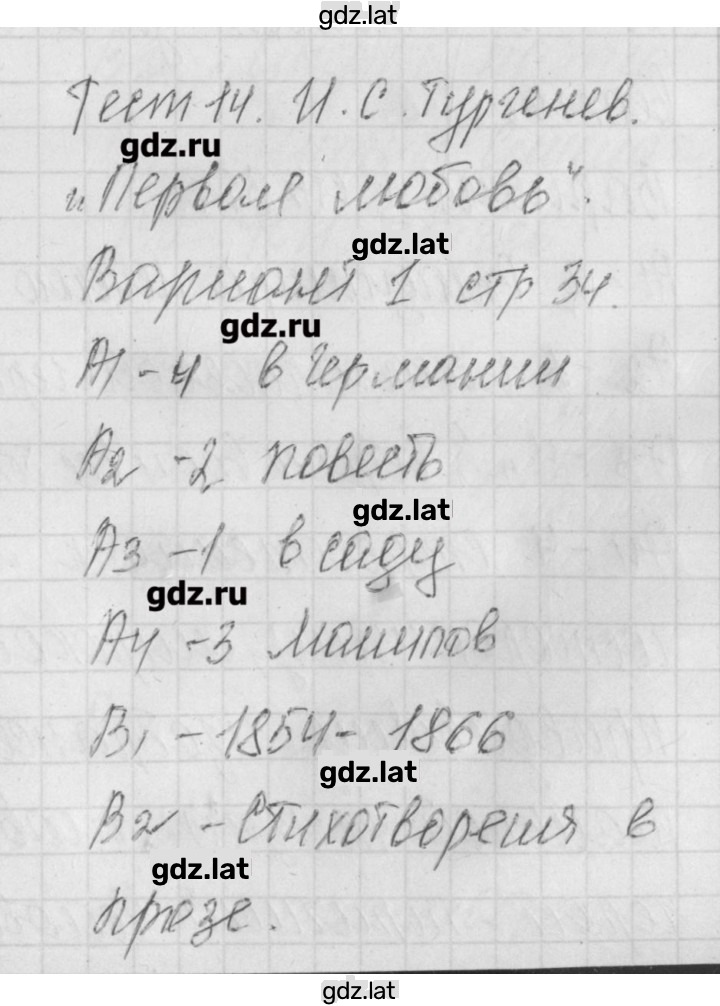 gdz.lat
Тест 14. И. С. Тургенев.
gdz.ru
"Первая любовь".
gdz.lat
Вариант 1 стр 34.
gdz.ru
А1 - 4 в Германии
А2 - 2 повесть
gdz.lat
А3 - 1 в саду
gdz.ru
А4 - 3
В1 - 1854 - 1866
gdz.lat
В2 - Стихотворения в
gdz.lat
прозе.
gdz.lat